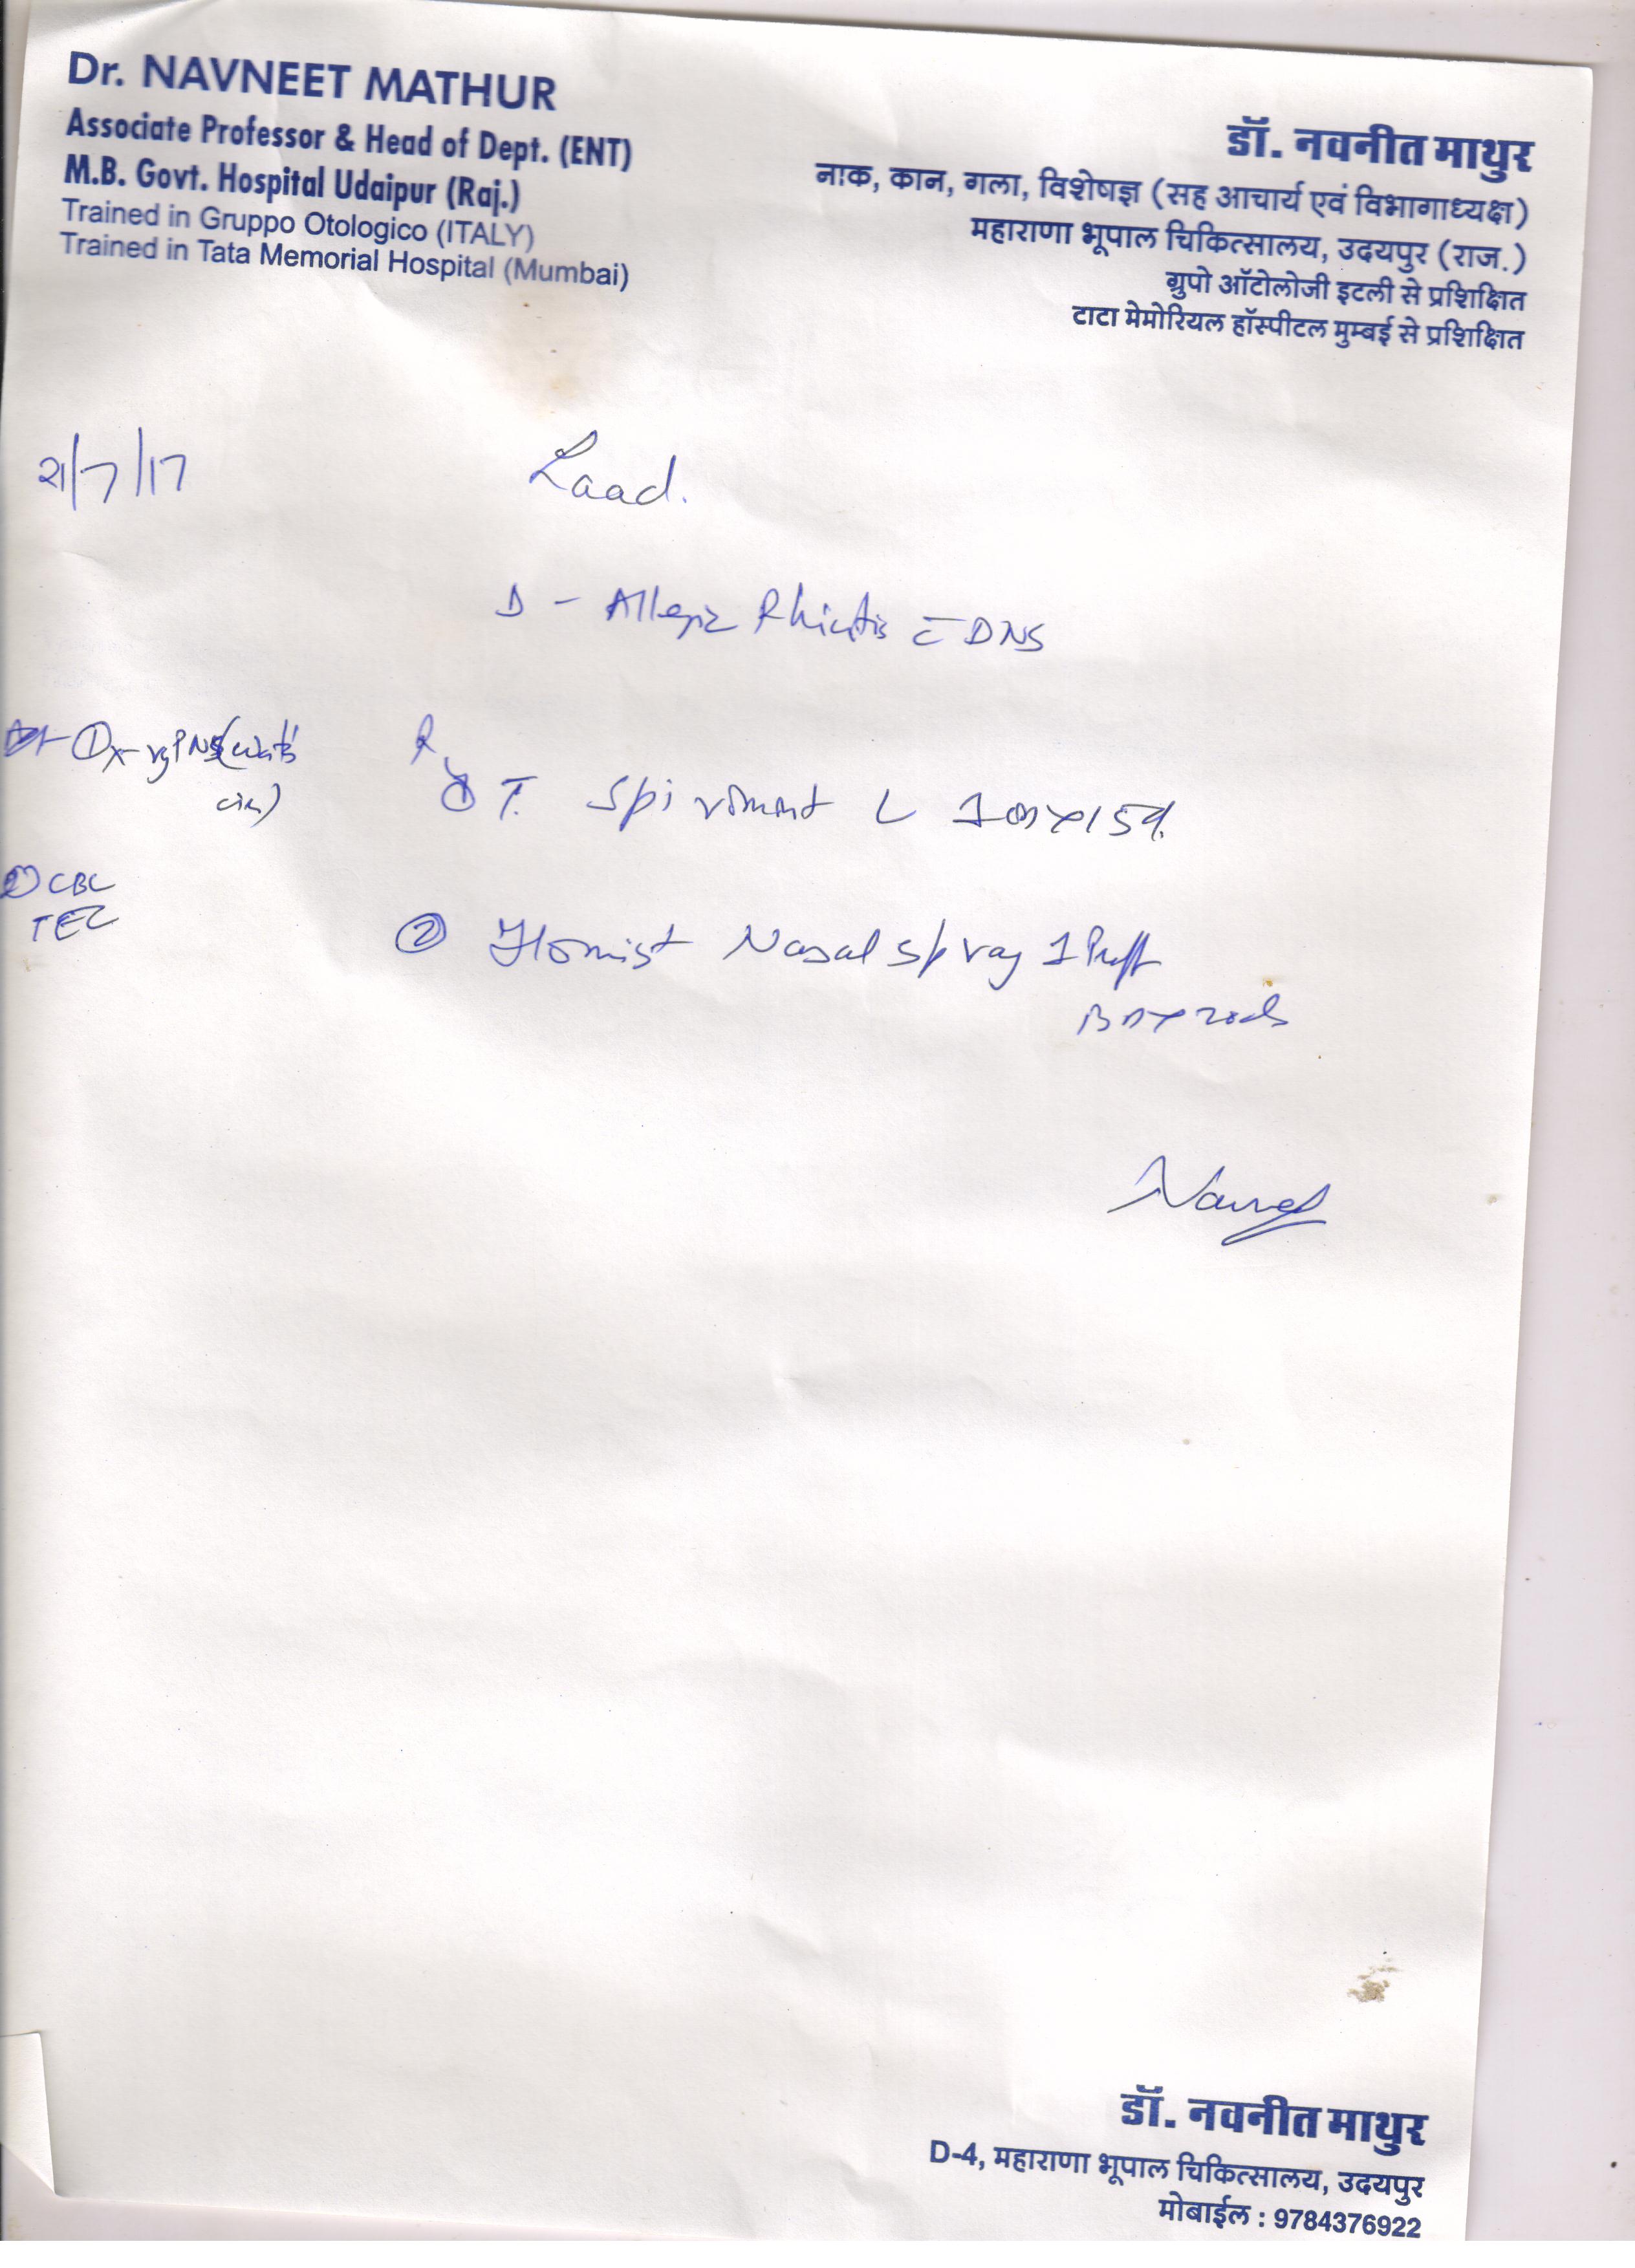 Dr. NAVNEET MATHUR
Associate Professor & Head of Dept. (ENT)
M.B. Govt. Hospital Udaipur (Raj.)
Trained in Gruppo Otologico (ITALY)
Trained in Tata Memorial Hospital (Mumbai)
डॉ. नवनीत माथुर
नाक, कान, गला, विशेषज्ञ (सह आचार्य एवं विभागाध्यक्ष)
महाराणा भूपाल चिकित्सालय, उदयपुर (राज.)
ग्रुपो ऑटोलोजी इटली से प्रशिक्षित
टाटा मेमोरियल हॉस्पीटल मुम्बई से प्रशिक्षित
21/7/17
Laad.
D - Allergic Rhinitis c̄ DNS
① X-ray PNS
② CBC
TEC
R
① T. L
② Flomist Nasal spray 1 Puff
डॉ. नवनीत माथुर
D-4, महाराणा भूपाल चिकित्सालय, उदयपुर
मोबाईल : 9784376922